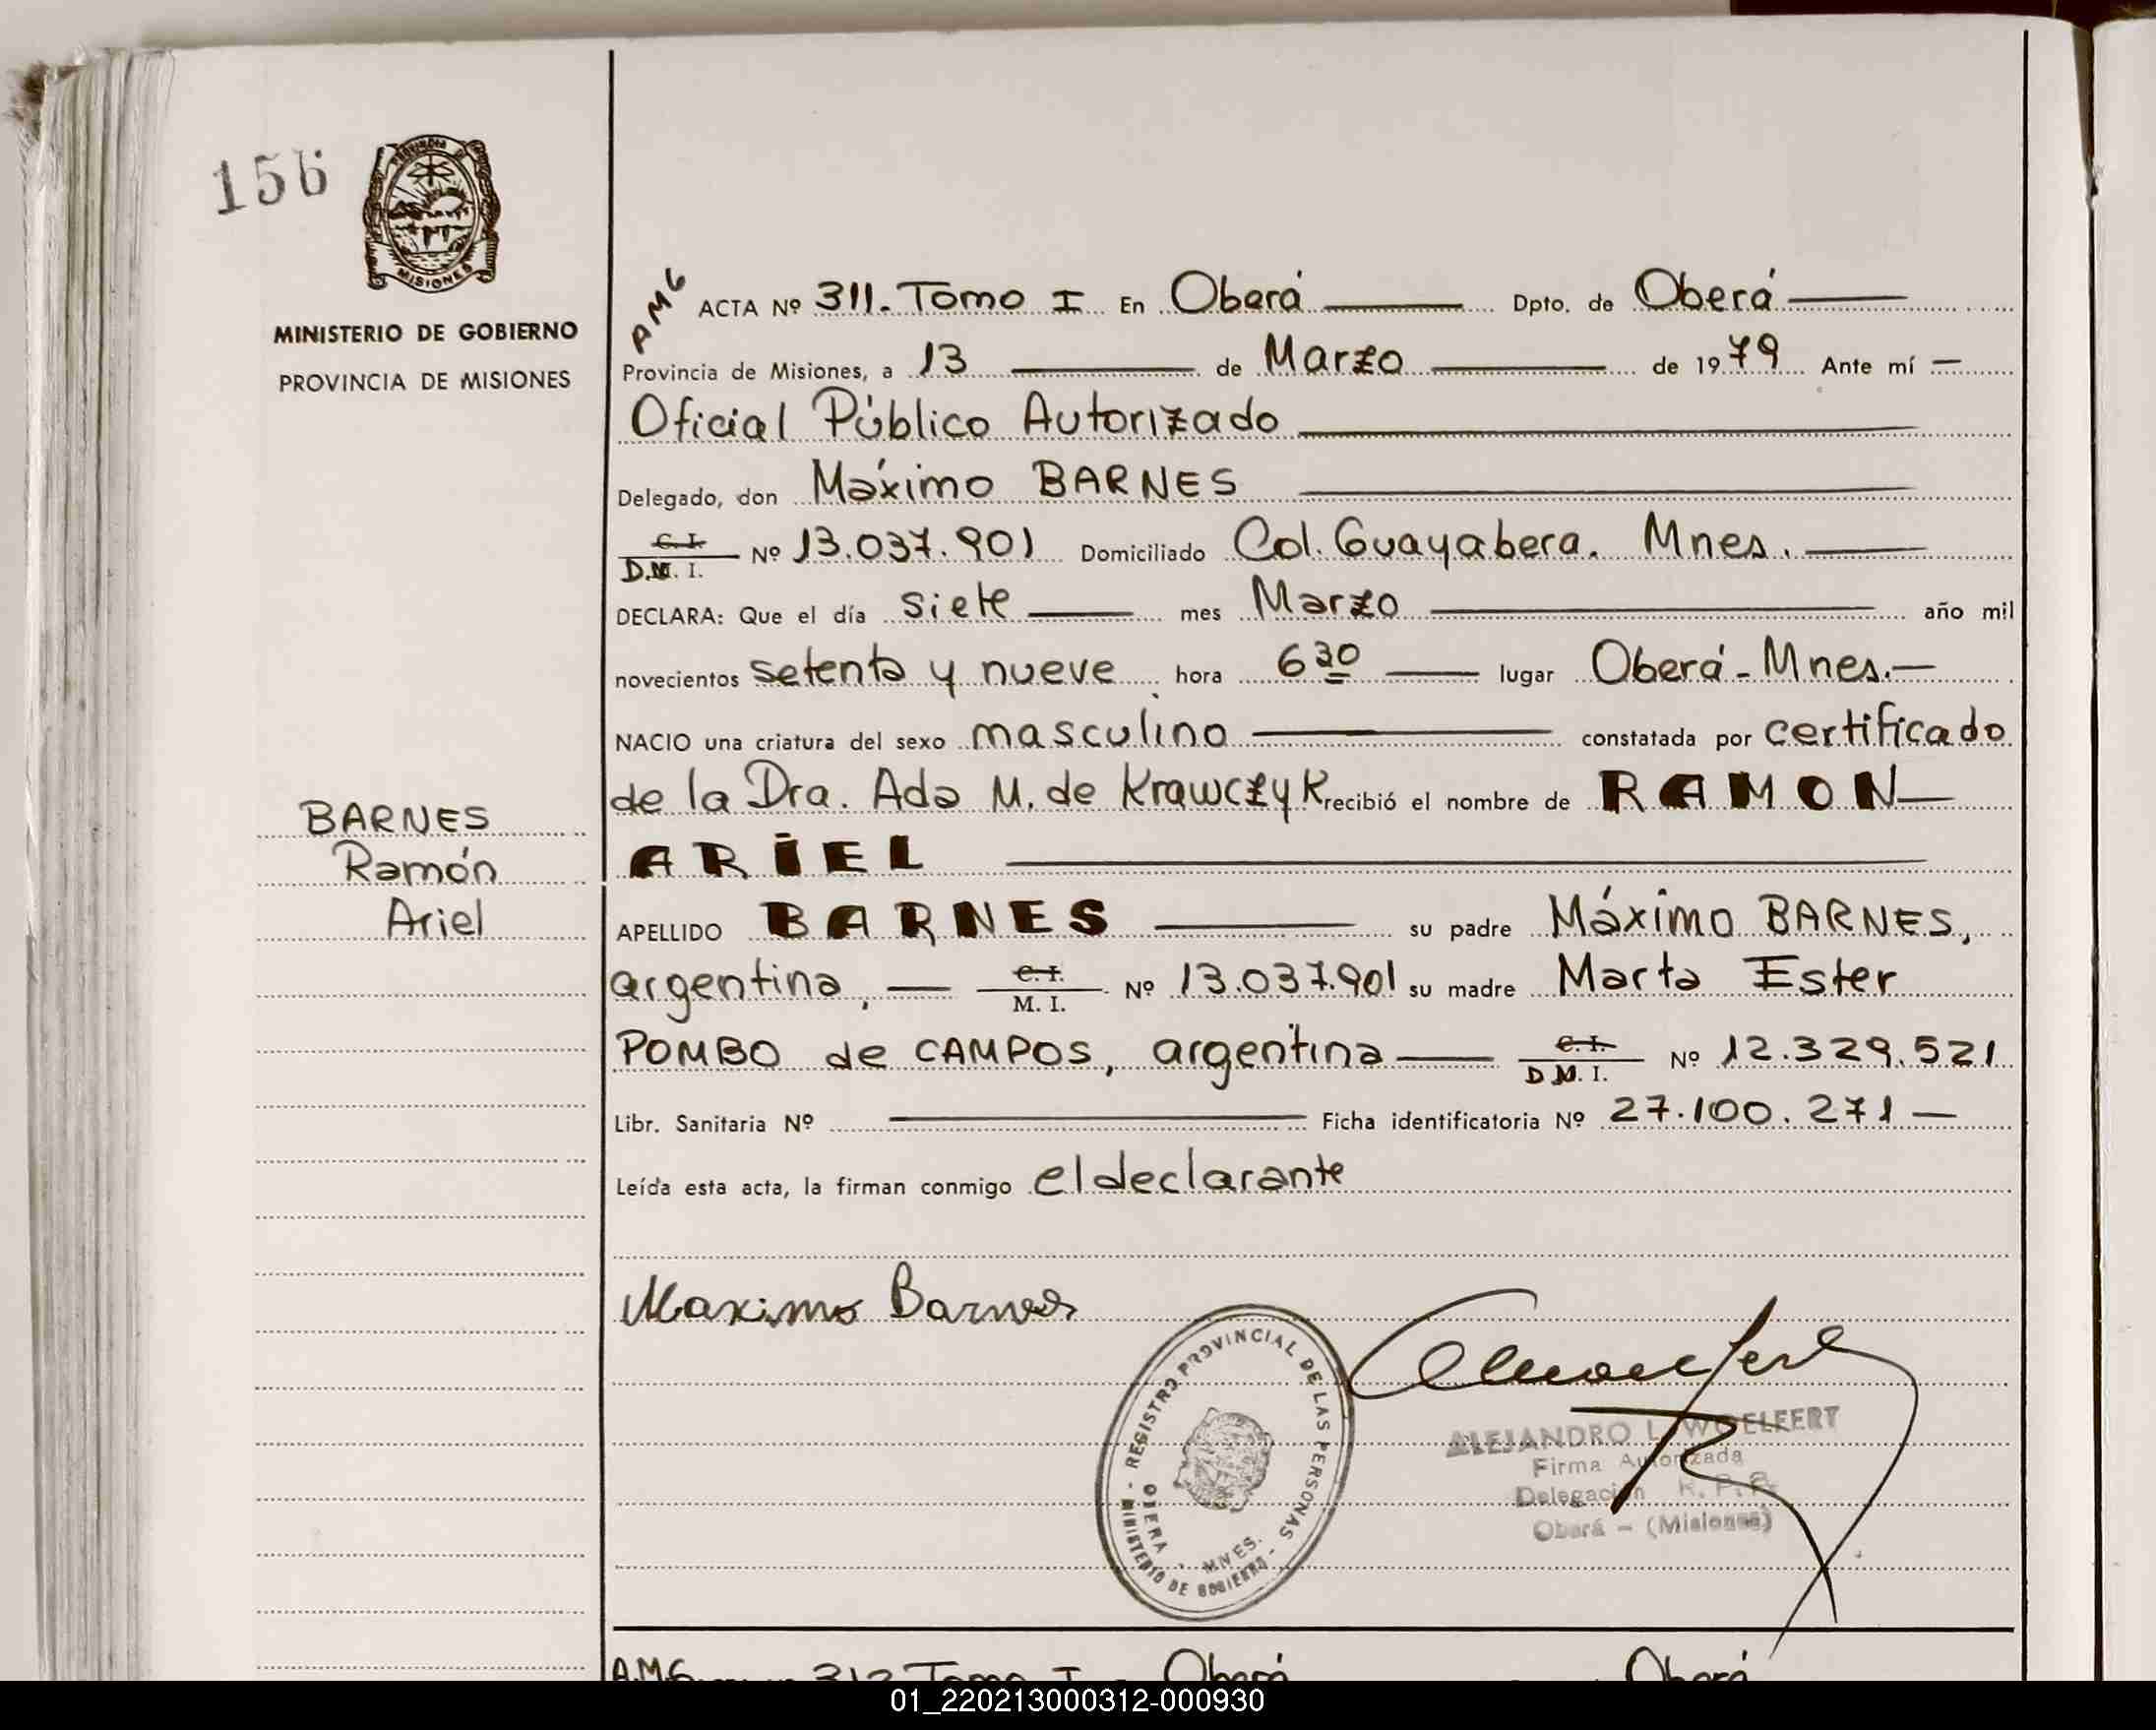 156
PROVINCIA DE
MISIONES
MINISTERIO DE GOBIERNO
PROVINCIA DE MISIONES
BARNES
Ramón
Ariel
AMG
ACTA Nº 311. Tomo I En Oberá Dpto. de Oberá
Provincia de Misiones, a 13 de Marzo de 1979 Ante mí
Oficial Público Autorizado
Delegado, don Máximo BARNES
C. I.
D.M. I. Nº 13.037.901 Domiciliado Col. Guayabera. Mnes.
DECLARA: Que el día siete mes Marzo año mil
novecientos setenta y nueve hora 6 30 lugar Oberá - Mnes.
NACIO una criatura del sexo masculino constatada por certificado
de la Dra. Ada M. de Krawczyk recibió el nombre de RAMON
ARIEL
APELLIDO BARNES su padre Máximo BARNES,
argentina, C. I.
M. I. Nº 13.037.901 su madre Marta Ester
POMBO de CAMPOS, argentina C. I.
D M. I. Nº 12.329.521
Libr. Sanitaria Nº Ficha identificatoria Nº 27.100.271
Leída esta acta, la firman conmigo el declarante
Maximo Barnes
- REGISTRO PROVINCIAL DE LAS PERSONAS -
MINISTERIO DE GOBIERNO
OBERA - MNES.
ALEJANDRO L. WOELFERT
Firma Autorizada
Delegación R. P. P.
Oberá - (Misiones)
AMG 312 Tomo I Oberá Oberá
01_220213000312-000930